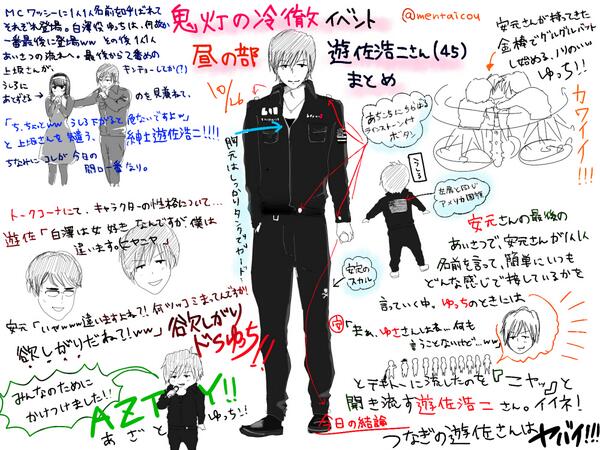 鬼灯の冷徹イベント
@mentaicou
昼の部 遊佐浩二さん(45)
まとめ
10/26
MCワッシーに1人1人名前を呼ばれて
それぞれ登場。白澤役ゆっちは、何故か
一番最後に登場ww その後1人1人
あいさつの流れへ。最後から2番めの
上坂さんが、
うしろに
あとずさる
のを見兼ねて、
「ち、ちょっとww うしろ下がると危ないですよw」
と上坂さんを気遣う、紳士遊佐浩二!!!!
ちなみにコレが今日の
開口一番なり。
トークコーナーにて、キャラクターの性格について…
遊佐「白澤は女好きなんですが、僕は
違います。ニヤニヤ」
安元「いやwww違いますよね?!何ツッコミまってんですか!!
欲しがりだねて!ww」
欲しがり
ドSゆっち!!
みんなのために
かけつけました!!
AZTOY!!
あざとゆっち!!
胸元はしっかりタンクでガード…
あちこちにちらばる
ラインストーンイナ
ボタン
うしろ
左肩と同じ
アメリカ国旗
安定のスカル
安元さんが持ってきた
金棒でグルグルバット
し始める、ノリのいい
ゆっち!!
カワイイ!!!
安元さんの最後の
あいさつで、安元さんが1人1人
名前を言って、簡単にいつも
どんな感じで接しているかを
言っていく中。ゆっちのときには
安「まぁ、ゆささんはネ…何も
言うことないけど…ww」
とテキトーに流したのを『ニヤッ』と
聞き流す遊佐浩二さん。イイネ!
今日の結論
つなぎの遊佐さんはヤバイ!!!